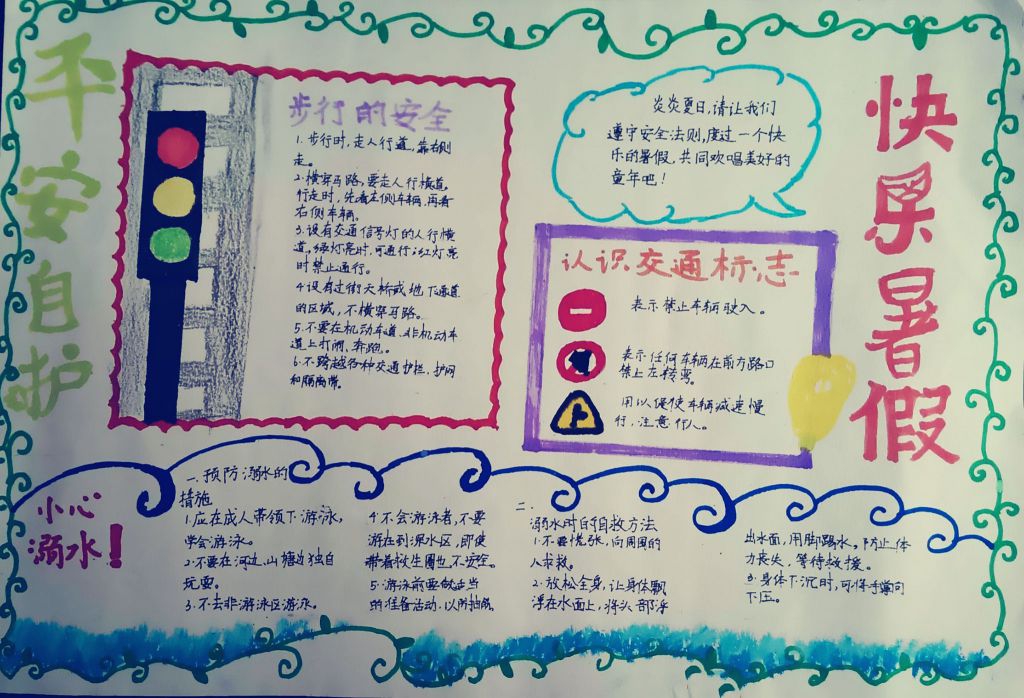 平安自护
步行的安全
1.步行时,走人行道,靠右侧
走。
2.横穿马路,要走人行横道,
行走时,先看左侧车辆,再看
右侧车辆。
3.设有交通信号灯的人行横
道,绿灯亮时,可通行;红灯亮
时禁止通行。
4.没有过街天桥或地下通道
的区域,不横穿马路。
5.不要在机动车道、非机动车
道上打闹、奔跑。
6.不跨越各种交通护栏、护网
和隔离带。
炎炎夏日,请让我们
遵守安全法则,度过一个快
乐的暑假,共同欢唱美好的
童年吧!
认识交通标志
表示禁止车辆驶入。
表示任何车辆在前方路口
禁止左转弯。
用以促使车辆减速慢
行,注意行人。
快乐暑假
小心
溺水!
一.预防溺水的
措施
1.应在成人带领下游泳,
学会游泳。
2.不要在河边、山塘边独自
玩耍。
3.不去非游泳区游泳。
4.不会游泳者,不要
游在到深水区,即使
带着救生圈也不安全。
5.游泳前要做适当
的准备活动,以防抽筋。
二.
溺水时的自救方法
1.不要慌张,向周围的
人求救。
2.放松全身,让身体飘
浮在水面上,将头部浮
出水面,用脚踢水。防止体
力丧失,等待救援。
3.身体下沉时,可将手掌向
下压。